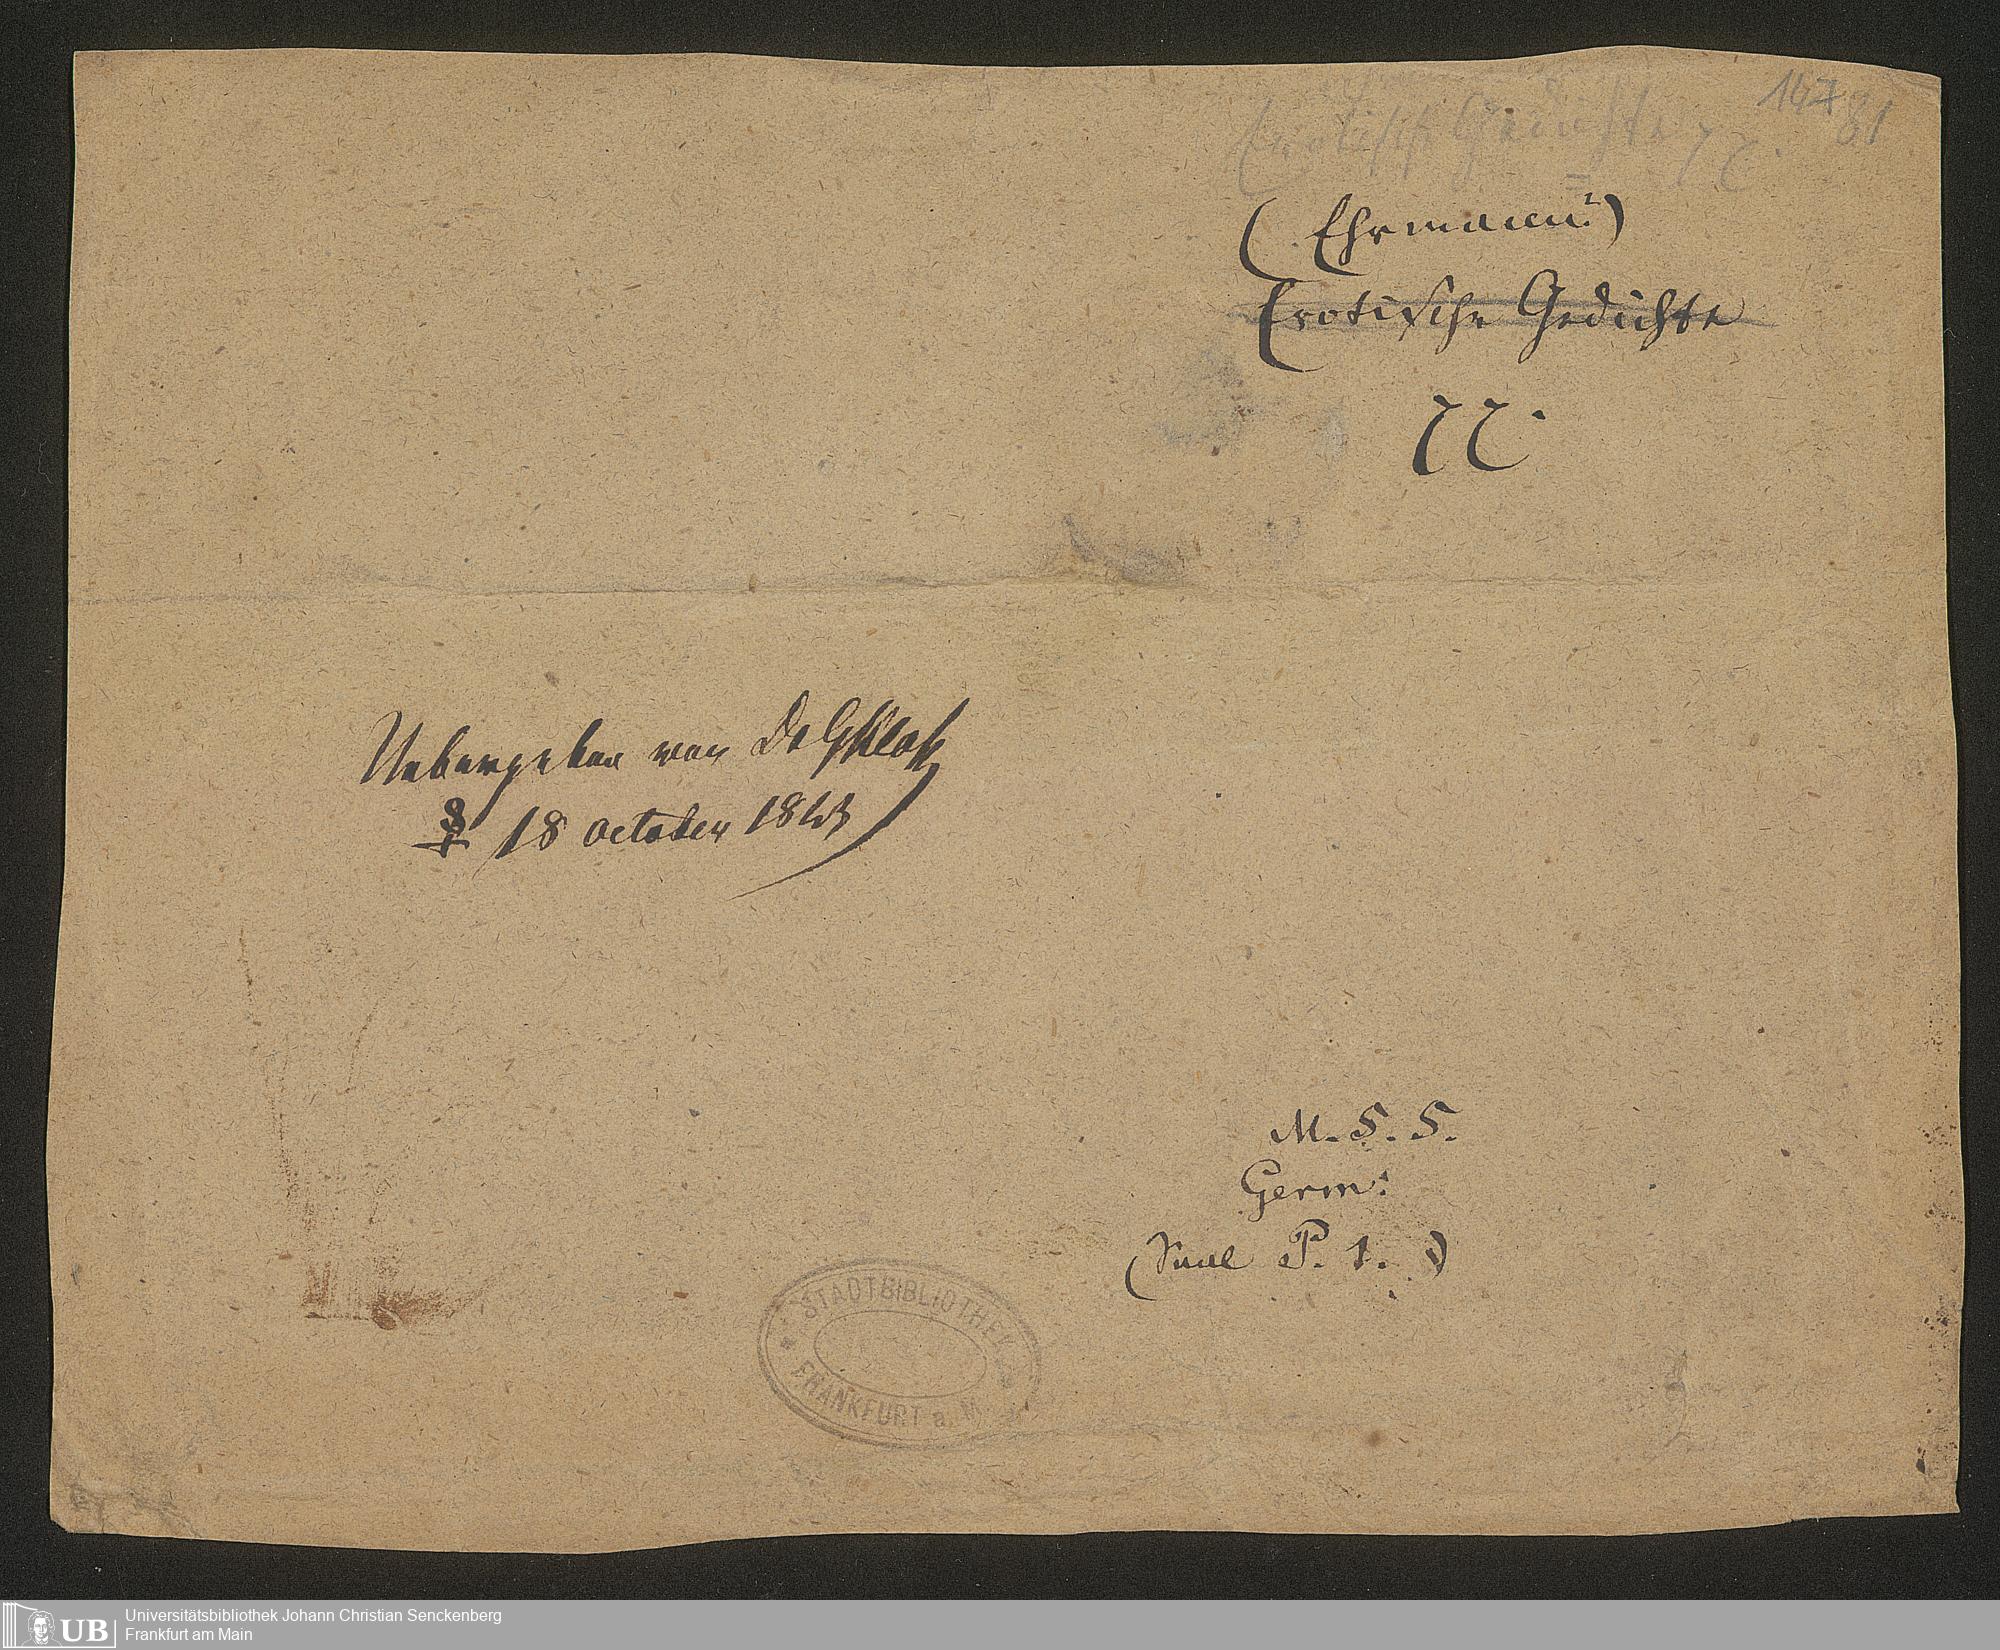 147
81
Erotische Gedichte
(Ehrmann?)
Erotische Gedichte
Uebergeben von Dr GKloß
18 October 1843
M. S. S.
Germ:
(Saal P. 1.)
STADTBIBLIOTHEK
FRANKFURT a. M.
UB
Universitätsbibliothek Johann Christian Senckenberg
Frankfurt am Main